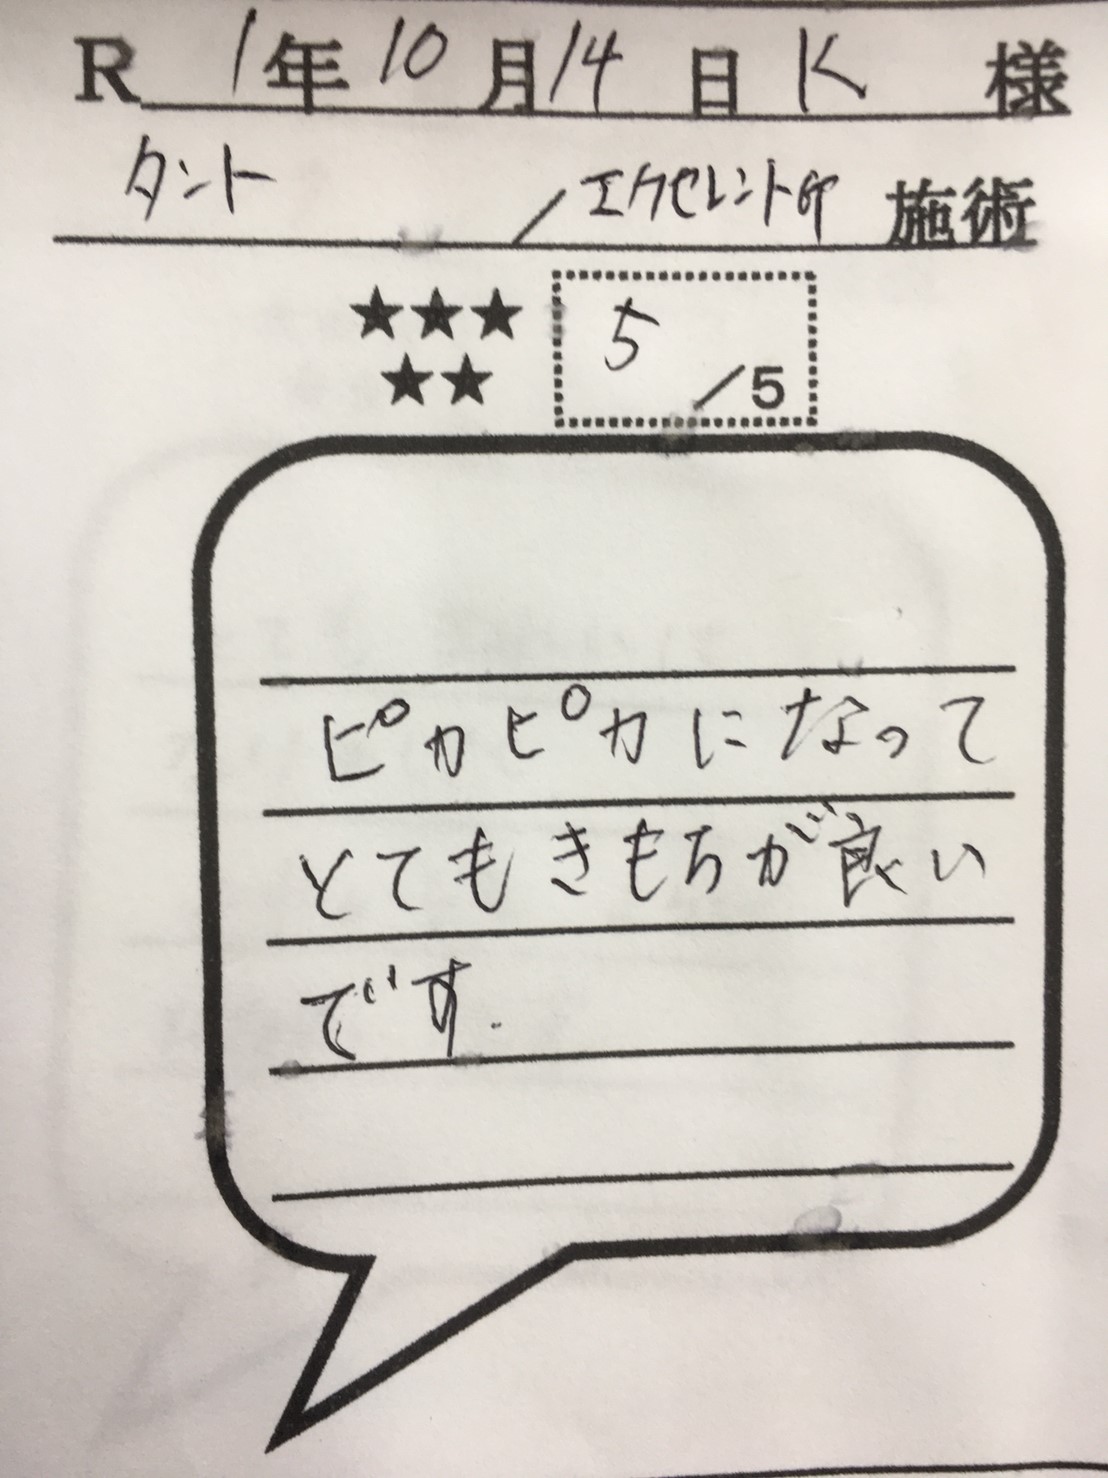 R 1年10月14日 K 様
タント / エクセレント 施術
★★★
★★
5/5
ピカピカになって
とてもきもちが良い
です.